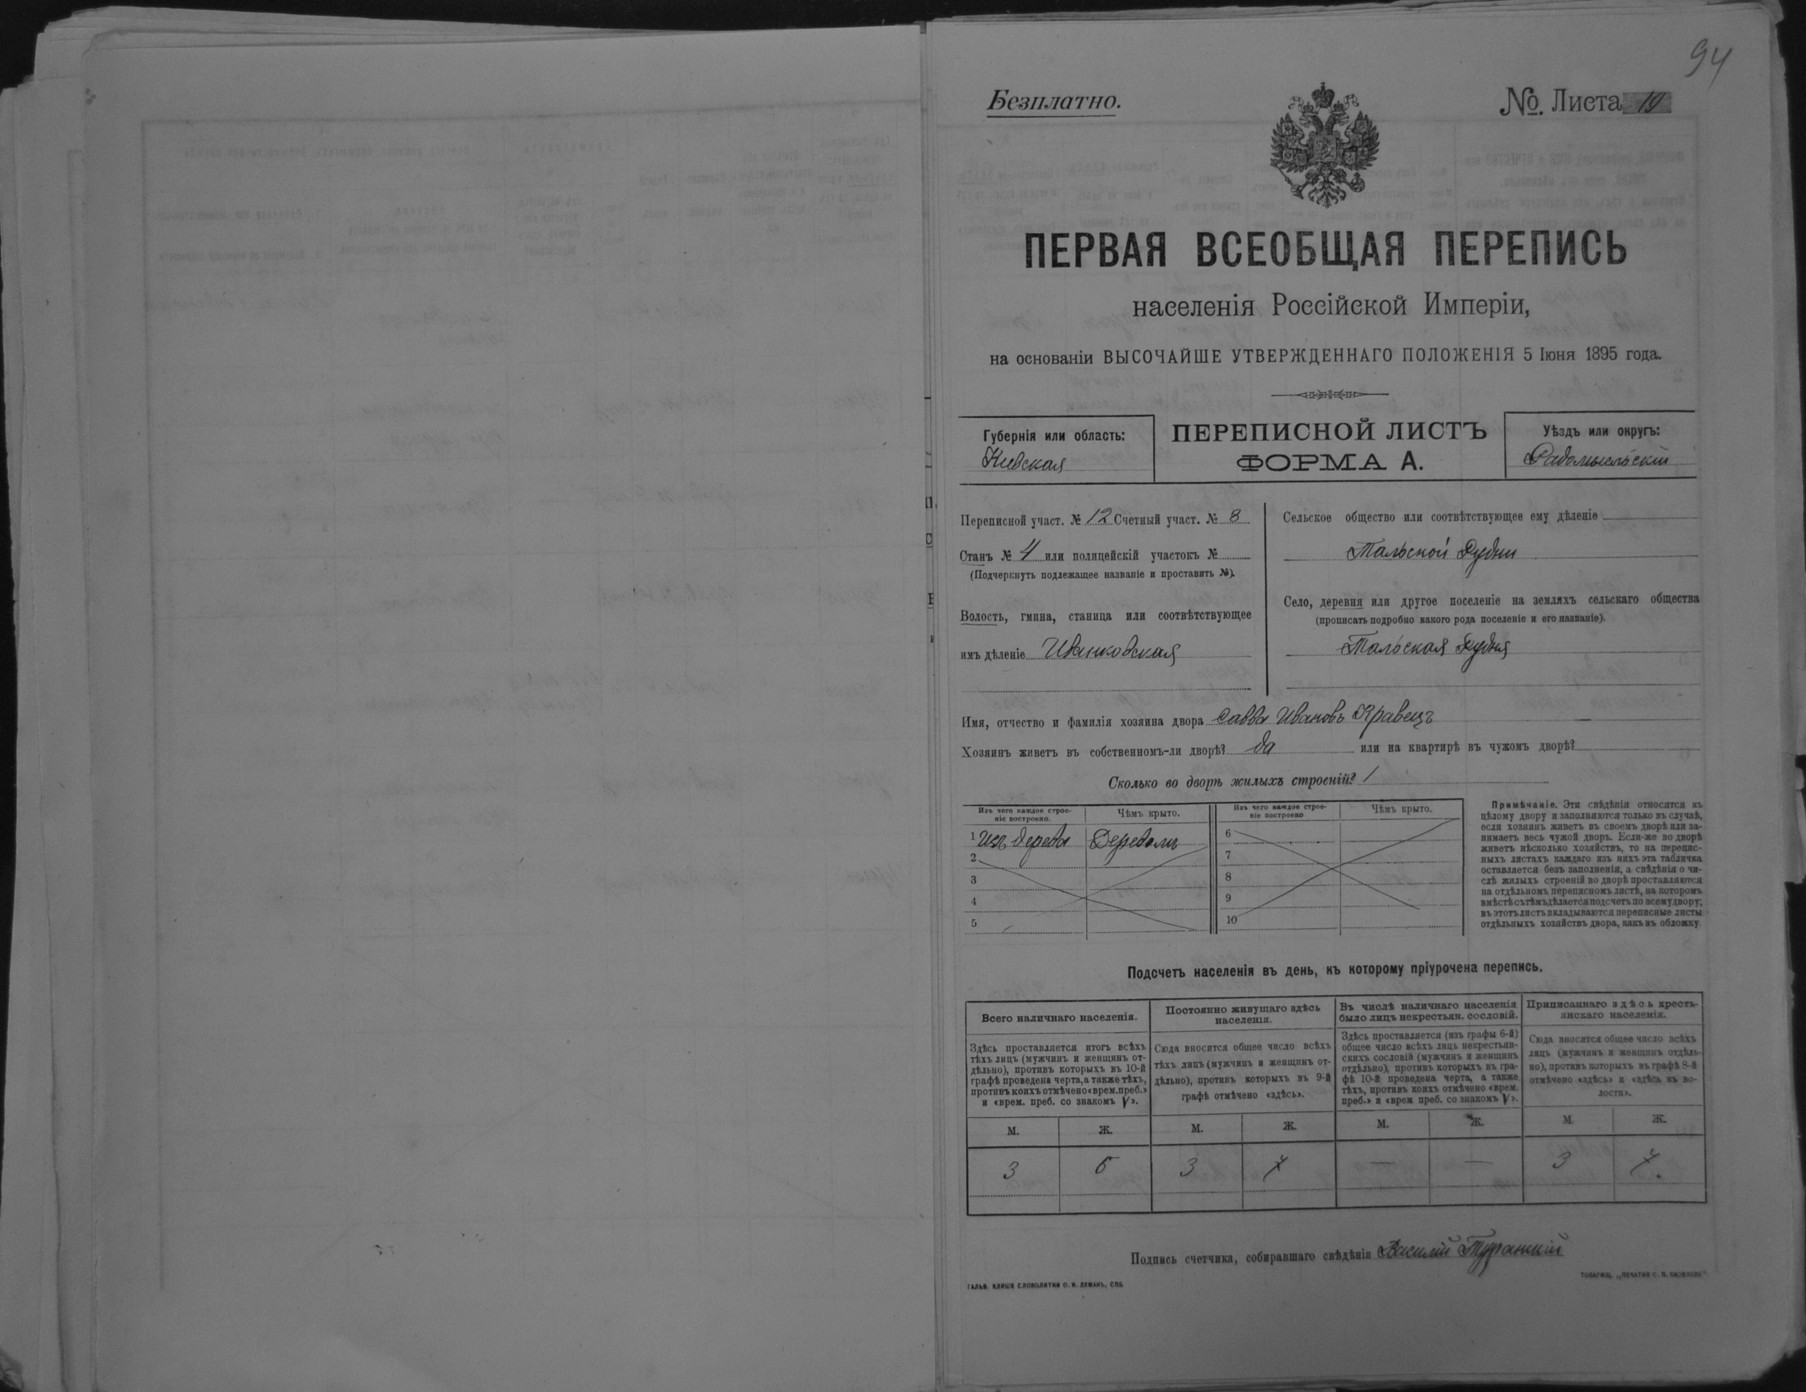 94
Безплатно.
№ Листа 19
ПЕРВАЯ ВСЕОБЩАЯ ПЕРЕПИСЬ
населенія Россійской Имперіи,
на основаніи ВЫСОЧАЙШЕ УТВЕРЖДЕННАГО ПОЛОЖЕНІЯ 5 Іюня 1895 года.
Губернія или область:
Кіевская
ПЕРЕПИСНОЙ ЛИСТЪ
ФОРМА А.
Уѣздъ или округъ:
Радомысльскій
Переписной участ. № 12 Счетный участ. № 8
Станъ № 4 или полицейскій участокъ №
(Подчеркнуть подлежащее названіе и проставить №).
Волость, гмина, станица или соотвѣтствующее
имъ дѣленіе Иванковская
Сельское общество или соотвѣтствующее ему дѣленіе
Тальской Рудни
Село, деревня или другое поселеніе на земляхъ сельскаго общества
(прописать подробно какого рода поселеніе и его названіе).
Тальская Рудня
Имя, отчество и фамилія хозяина двора Савва Ивановъ Кравецъ
Хозяинъ живетъ въ собственномъ-ли дворѣ? да или на квартирѣ въ чужомъ дворѣ?
Сколько во дворѣ жилыхъ строеній? 1
Изъ чего каждое строе-
ніе построено.
Чѣмъ крыто.
1 Изъ дерева Деревомъ
2
3
4
5
Изъ чего каждое строе-
ніе построено
Чѣмъ крыто.
6
7
8
9
10
Примѣчаніе. Эти свѣдѣнія относятся къ
цѣлому двору и заполняются только въ случаѣ,
если хозяинъ живетъ въ своемъ дворѣ или за-
нимаетъ весь чужой дворъ. Если-же во дворѣ
живетъ нѣсколько хозяйствъ, то на перепис-
ныхъ листахъ каждаго изъ нихъ эта табличка
оставляется безъ заполненія, а свѣдѣнія о чи-
слѣ жилыхъ строеній во дворѣ проставляются
на отдѣльномъ переписномъ листѣ, на которомъ
вмѣстѣ съ тѣмъ дѣлается подсчетъ по всему двору;
въ этотъ листъ вкладываются переписные листы
отдѣльныхъ хозяйствъ двора, какъ въ обложку.
Подсчетъ населенія въ день, къ которому пріурочена перепись.
Всего наличнаго населенія.
Здѣсь проставляется итогъ всѣхъ
тѣхъ лицъ (мужчинъ и женщинъ от-
дѣльно), противъ которыхъ въ 10-й
графѣ проведена черта, а также тѣхъ,
противъ коихъ отмѣчено «врем. преб.»
и «врем. преб. со знакомъ V».
Постоянно живущаго здѣсь
населенія.
Сюда вносится общее число всѣхъ
тѣхъ лицъ (мужчинъ и женщинъ от-
дѣльно), противъ которыхъ въ 9-й
графѣ отмѣчено «здѣсь».
Въ числѣ наличнаго населенія
было лицъ некрестьян. сословій.
Здѣсь проставляется (изъ графы 6-й)
общее число всѣхъ лицъ некрестьян-
скихъ сословій (мужчинъ и женщинъ
отдѣльно), противъ которыхъ въ гра-
фѣ 10-й проведена черта, а также
тѣхъ, противъ коихъ отмѣчено «врем.
преб.» и «врем преб. со знакомъ V».
Приписаннаго здѣсь кресть-
янскаго населенія.
Сюда вносится общее число всѣхъ
лицъ (мужчинъ и женщинъ отдѣль-
но), противъ которыхъ въ графѣ 8-й
отмѣчено «здѣсь» и «здѣсь въ во-
лости».
М. Ж. М. Ж. М. Ж. М. Ж.
3 6 3 7 — — 3 7.
Подпись счетчика, собиравшаго свѣдѣнія Василій